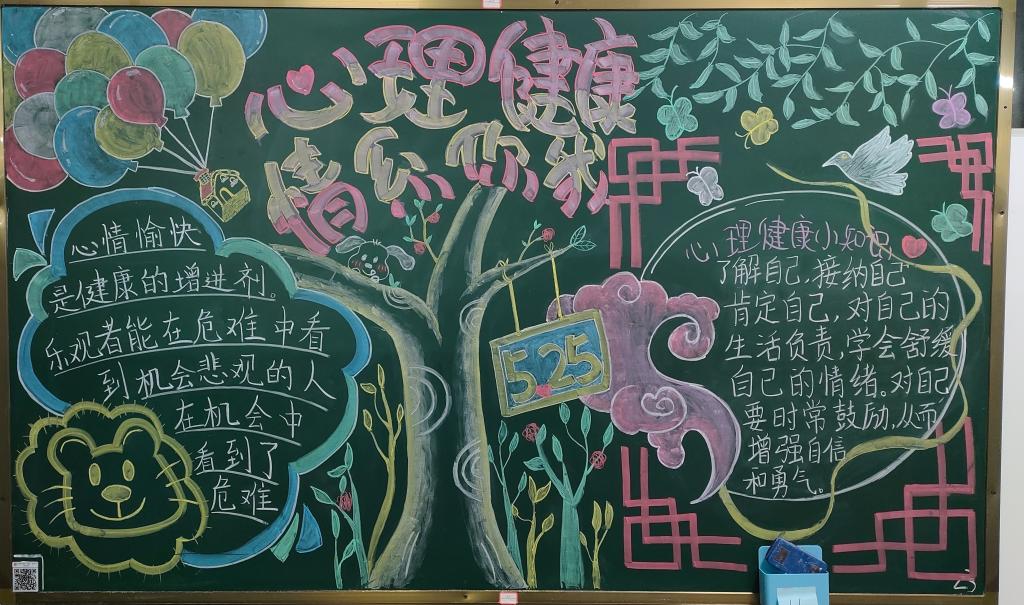 心理健康
情系你我
心情愉快
是健康的增进剂。
乐观者能在危难中看
到机会悲观的人
在机会中
看到了
危难
5.25
心理健康小知识
了解自己,接纳自己
肯定自己,对自己的
生活负责,学会舒缓
自己的情绪。对自己
要时常鼓励,从而
增强自信
和勇气。